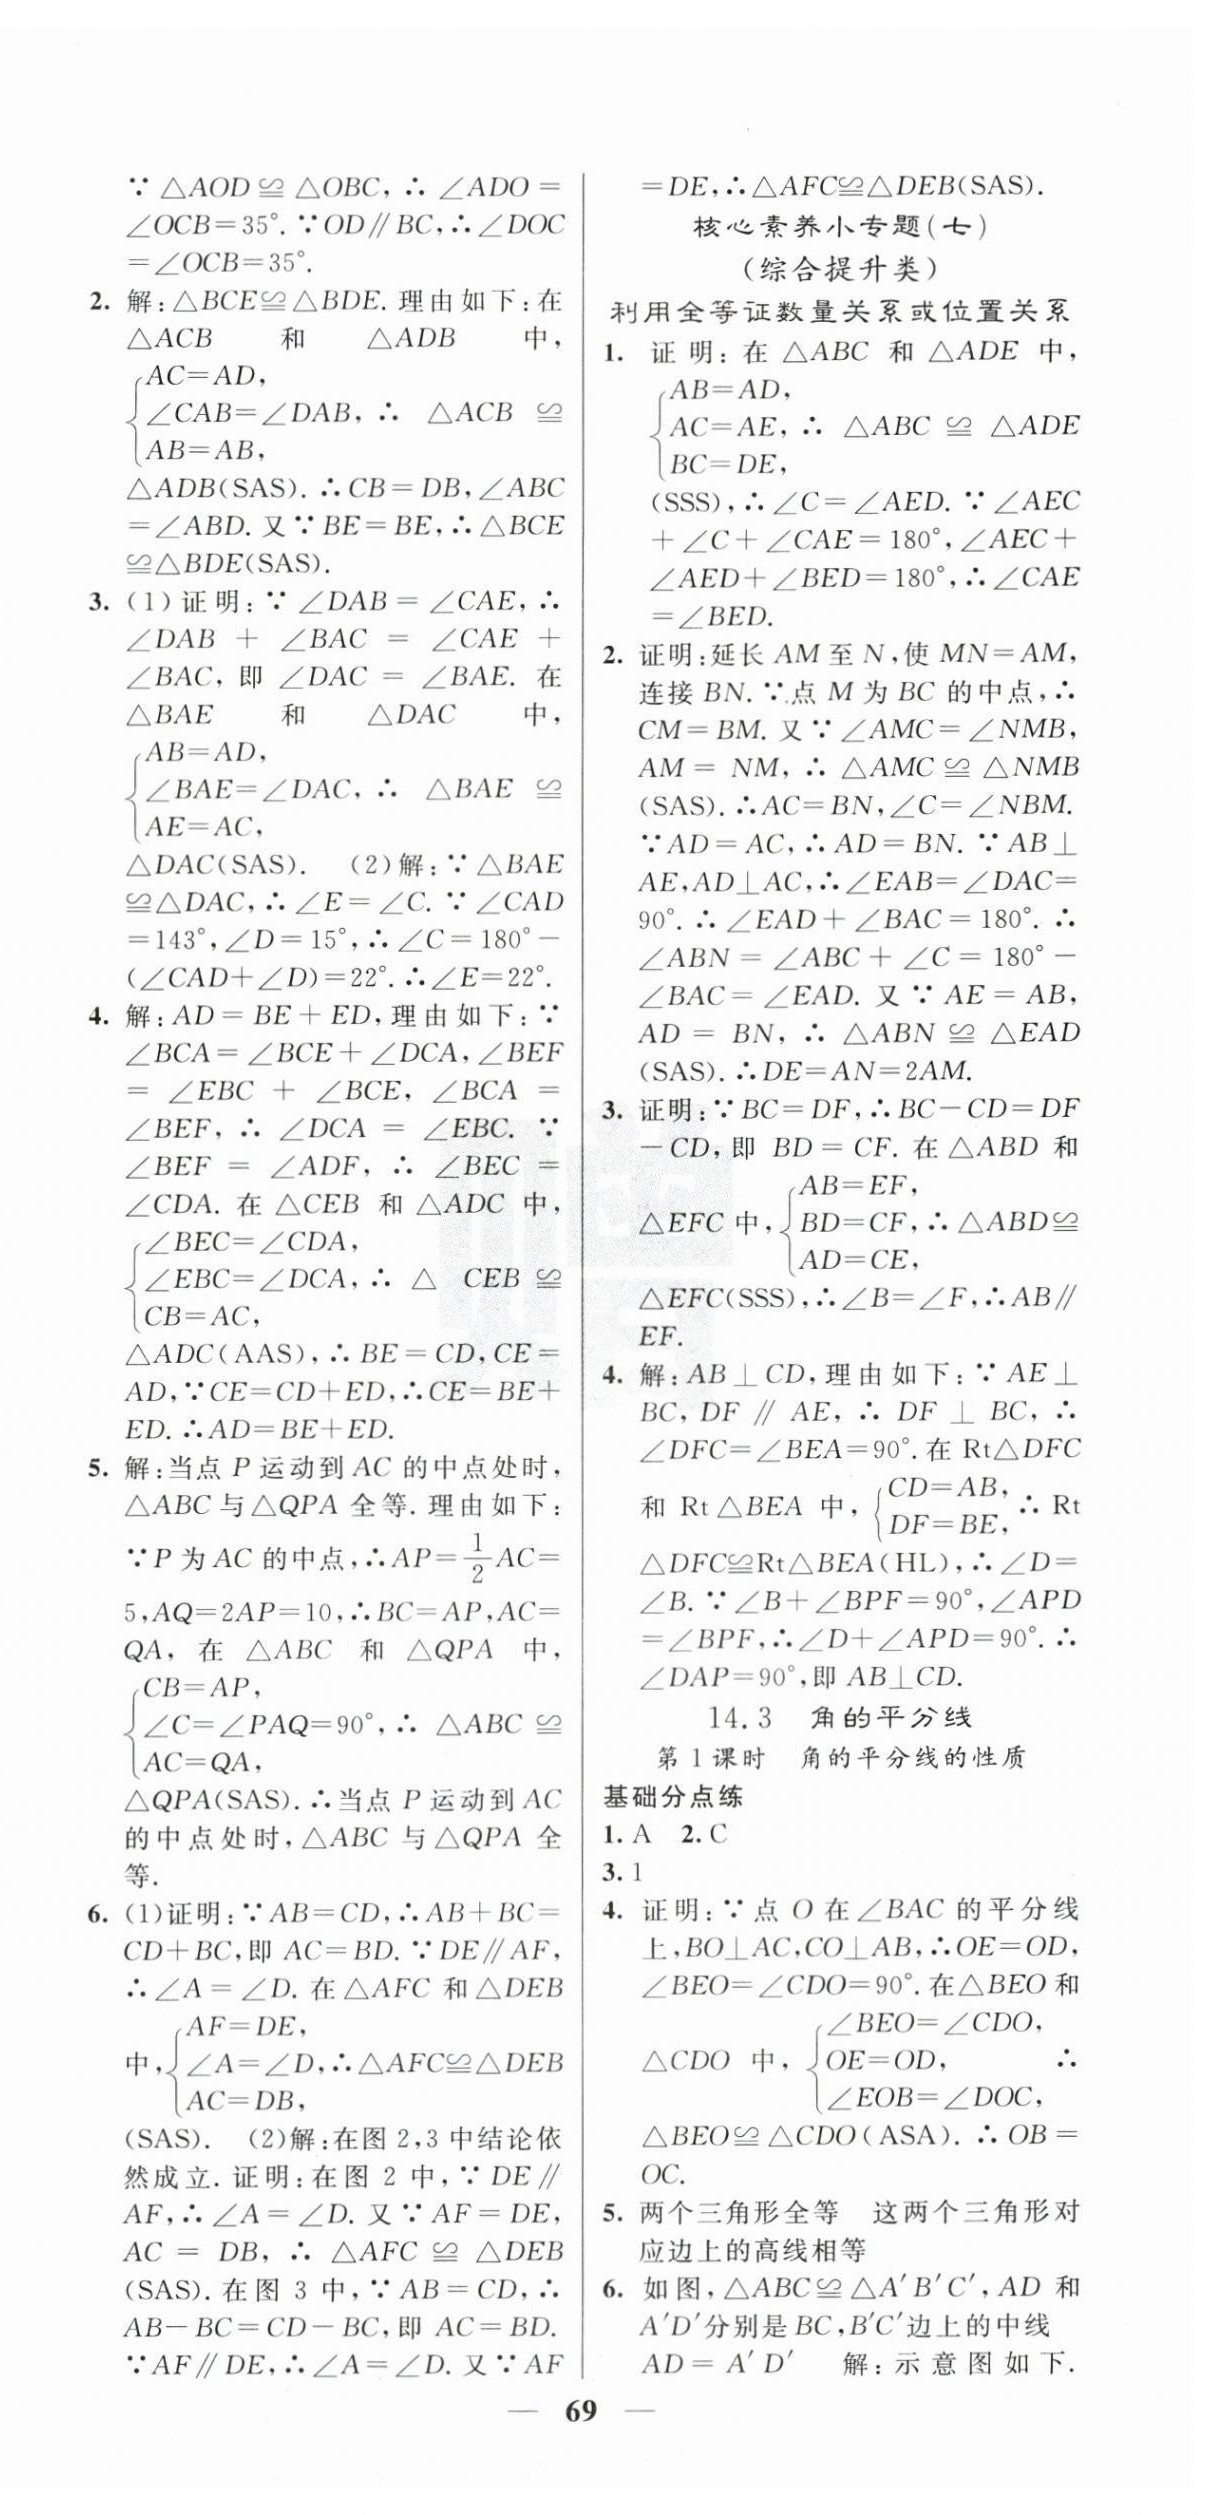 ∵ △AOD ≌ △OBC, ∴ ∠ADO =
∠OCB=35°. ∵OD∥BC,∴∠DOC
=∠OCB=35°.
2. 解:△BCE≌△BDE. 理由如下:在
△ACB 和 △ADB 中,
AC=AD,
∠CAB=∠DAB, ∴ △ACB ≌
AB=AB,
△ADB(SAS). ∴CB=DB,∠ABC
=∠ABD. 又∵BE=BE,∴△BCE
≌△BDE(SAS).
3. (1)证明:∵∠DAB=∠CAE,∴
∠DAB + ∠BAC = ∠CAE +
∠BAC, 即 ∠DAC = ∠BAE. 在
△BAE 和 △DAC 中,
AB=AD,
∠BAE=∠DAC, ∴ △BAE ≌
AE=AC,
△DAC(SAS). (2)解:∵△BAE
≌△DAC,∴∠E=∠C. ∵∠CAD
=143°,∠D=15°,∴∠C=180°−
(∠CAD+∠D)=22°.∴∠E=22°.
4. 解:AD=BE+ED,理由如下:∵
∠BCA=∠BCE+∠DCA,∠BEF
= ∠EBC + ∠BCE, ∠BCA =
∠BEF, ∴ ∠DCA = ∠EBC. ∵
∠BEF = ∠ADF, ∴ ∠BEC =
∠CDA. 在 △CEB 和 △ADC 中,
∠BEC=∠CDA,
∠EBC=∠DCA, ∴ △ CEB ≌
CB=AC,
△ADC(AAS),∴BE=CD,CE=
AD,∵CE=CD+ED,∴CE=BE+
ED.∴AD=BE+ED.
5. 解:当点 P 运动到 AC 的中点处时,
△ABC 与△QPA 全等. 理由如下:
∵P 为 AC 的中点,∴AP=1/2AC=
5,AQ=2AP=10,∴BC=AP,AC=
QA, 在 △ABC 和 △QPA 中,
CB=AP,
∠C=∠PAQ=90°,∴ △ABC ≌
AC=QA,
△QPA(SAS). ∴当点 P 运动到 AC
的中点处时,△ABC 与△QPA 全
等.
6. (1)证明:∵AB=CD,∴AB+BC=
CD+BC,即 AC=BD. ∵DE∥AF,
∴∠A=∠D. 在△AFC 和△DEB
AF=DE,
中,∠A=∠D,∴△AFC≌△DEB
AC=DB,
(SAS). (2)解:在图 2,3 中结论依
然成立. 证明:在图 2 中,∵DE∥
AF,∴∠A=∠D. 又∵AF=DE,
AC = DB, ∴ △AFC ≌ △DEB
(SAS). 在图 3 中,∵AB=CD,∴
AB−BC=CD−BC,即 AC=BD.
∵AF∥DE,∴∠A=∠D. 又∵AF
=DE,∴△AFC≌△DEB(SAS).
核心素养小专题(七)
(综合提升类)
利用全等证数量关系或位置关系
1. 证明:在 △ABC 和 △ADE 中,
AB=AD,
AC=AE, ∴ △ABC ≌ △ADE
BC=DE,
(SSS),∴∠C=∠AED. ∵∠AEC
+∠C+∠CAE=180°,∠AEC+
∠AED+∠BED=180°,∴∠CAE
=∠BED.
2. 证明:延长 AM 至 N,使 MN=AM,
连接 BN. ∵点 M 为 BC 的中点,∴
CM=BM. 又∵∠AMC=∠NMB,
AM = NM, ∴ △AMC ≌ △NMB
(SAS). ∴AC=BN,∠C=∠NBM.
∵AD=AC,∴AD=BN. ∵AB⊥
AE,AD⊥AC,∴∠EAB=∠DAC=
90°. ∴∠EAD+∠BAC=180°. ∴
∠ABN = ∠ABC + ∠C = 180° −
∠BAC=∠EAD. 又∵AE=AB,
AD = BN, ∴ △ABN ≌ △EAD
(SAS). ∴DE=AN=2AM.
3. 证明:∵BC=DF,∴BC−CD=DF
−CD,即 BD=CF. 在△ABD 和
AB=EF,
△EFC 中,BD=CF,∴△ABD≌
AD=CE,
△EFC(SSS),∴∠B=∠F,∴AB∥
EF.
4. 解:AB⊥CD,理由如下:∵AE⊥
BC, DF ∥ AE, ∴ DF ⊥ BC, ∴
∠DFC=∠BEA=90°. 在 Rt△DFC
CD=AB,
和 Rt△BEA 中, ∴ Rt
DF=BE,
△DFC≌Rt△BEA(HL),∴∠D=
∠B. ∵∠B+∠BPF=90°,∠APD
=∠BPF,∴∠D+∠APD=90°. ∴
∠DAP=90°,即 AB⊥CD.
14.3 角的平分线
第 1 课时 角的平分线的性质
基础分点练
1. A 2. C
3. 1
4. 证明:∵点 O 在∠BAC 的平分线
上,BO⊥AC,CO⊥AB,∴OE=OD,
∠BEO=∠CDO=90°. 在△BEO 和
∠BEO=∠CDO,
△CDO 中, OE=OD, ∴
∠EOB=∠DOC,
△BEO≌△CDO(ASA). ∴OB=
OC.
5. 两个三角形全等 这两个三角形对
应边上的高线相等
6. 如图,△ABC≌△A′B′C′,AD 和
A′D′分别是 BC,B′C′边上的中线
AD=A′D′ 解:示意图如下.
69